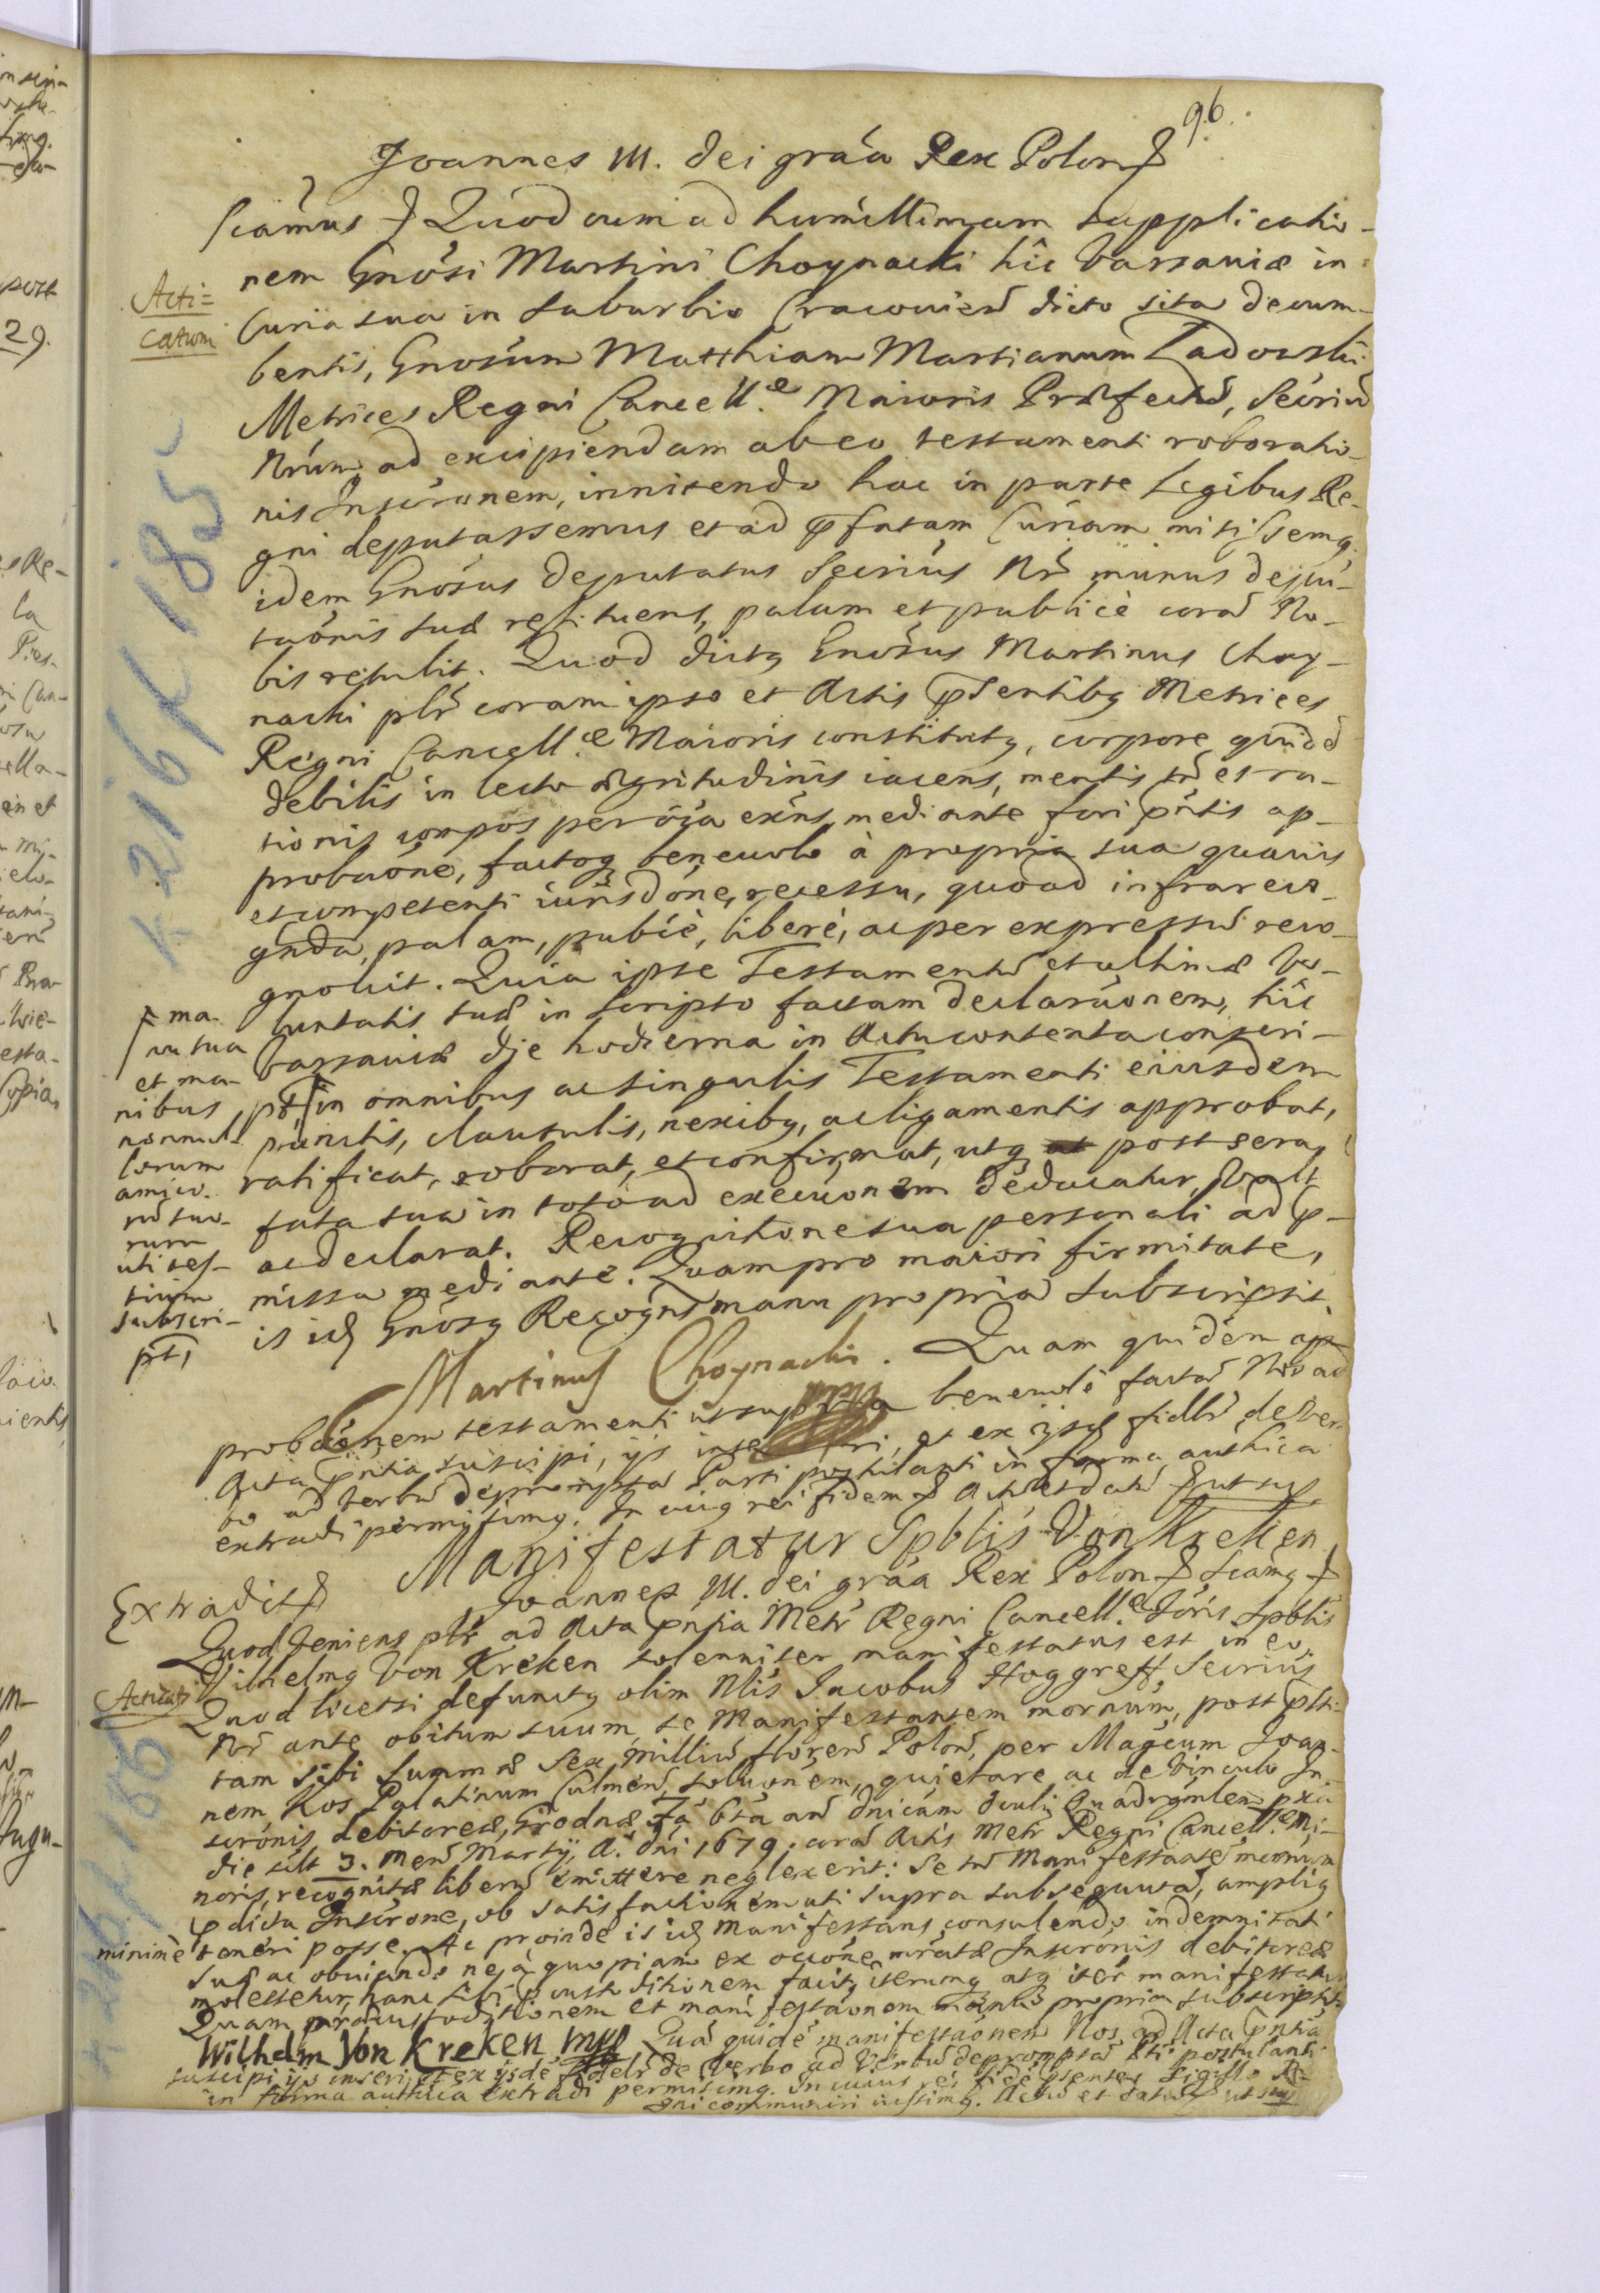 96.
Joannes III. dei gráa Rex Polon
sciamus Quod cum ad humillimam supplicatio-
nem Gnosi Martini Choynacki hîc Varsaviæ in
Acti=
catum
Curia sua in suburbio Cracovien dicto sita decum-
bentis, Gnosum Matthiam Martianum Ladowski
Metrices Regni Cancellæ Maioris Præfectu, Secriu
Nrum ad excipiendam ab eo testamenti roboratio-
nis Inscronem, innitendo hac in parte Legibus Re-
gni deputassemus et ad pfatam Curiam misissemq
idem Gnosus deputatus Secrius Nr munus depu-
taónis suæ restituens, palam et publicè cora No-
bis retulit. Quod dictq Gnosus Martinus Choy-
nacki plr coram ipso et Actis psentibq Metrices
Regni Cancellæ Maioris constitutq, corpore quide
debilis in lecto ægritudinis iacens, mentis tn et ra-
tionis compos per oia exns, mediante fori pntis ap-
probaone, factoq benevolo à propria sua quavis
et competenti iurisdone, recessu, quoad infra reco-
gnda, palam, pubcè, liberè, ac per expressu reco-
gnovit. Quia ipse Testamentu et ultimæ Vo-
luntatis suæ in scripto factam declaraonem, hîc
Varsaviæ die hodierna in Actu contenta conscri-
ptu, in omnibus ac singulis Testamenti eiusdem
punctis, clausulis, nexibq, ac ligamentis approbat,
ratificat, roborat, et confirmat, utq post sera
fata sua in toto ad execuonem deducatur, Vult
ac declarat. Recognitione sua personali ad p-
missa mediante. Quam pro maiori firmitate,
is id Gnosq Recogns manu propria subscripsit.
ma-
nu sua
et ma-
nibus
nonnul-
lorum
amico-
ru suo-
rum
uti tes-
tium
subscri-
pti,
Martinus Choynacki. Quam quidem ap-
probaonem testamenti ut supra benevole facta Nos ad
Acta pntia suscipi, ijs inseri, et ex ijsd fidlr de Ver-
bo ad Verbu deprompta Parti postulanti in forma authica
extradi permisimq. In cuiq rei fidem Actu et datu ut sup.
Manifestatur Spblis Von Kreken
Extradit
Joannes III. dei gráa Rex Polon sciamq
Quod Veniens plr ad Acta pntia Metr Regni Cancellæ Joris Spblis
Vilhelmq Von Kreken solenniter manifestatus est in eo,
Acticatu
Quod licetsi defunctq olim Nlis Jacobus Hoggreff Secrius
Nr ante obitum suum, se Manifestantem mornum, post psti-
tam sibi summæ sex milliu floren Polon, per Magcum Joan-
nem Kos Palatinum Culmen, soluonem, quietare ac de Vinculo In-
scronis debitoreæ, Grodnæ fa 6ta an dnicam Oculi Quadrgmlem pxa
die sclt 3. Men Martij A. dni 1679. cora Actis Metr Regni Cancellæ Mi-
noris recognitæ liberu emittere neglexerit: Se tn Manifestante mornum
pdicta Inscrone, ob satisfactionem uti supra subsequuta, ampliq
minimè teneri posse. Ac proinde is id Manifestans, consulendo indemnitati
suæ ac obviando ne à quopiam ex occone mratæ Inscronis debitoreæ
molestetur, hanc sibi pcustoditionem facit, iterumq atq iter manifestatur
Quam præcustoditionem et manifestaonem manu propria subscripsit
Wilhelm Von Kreken mpp Qua quide manifestaonem Nos ad Acta pntia
suscipi ijs inseri, et ex ijsde fidelr de Verbo ad Verbu deprompta Pti postulanti
in forma authica extradi permisimq. In cuius rei fide psentes sigillo Re-
gni communiri iussimq. Actu et datu ut sup